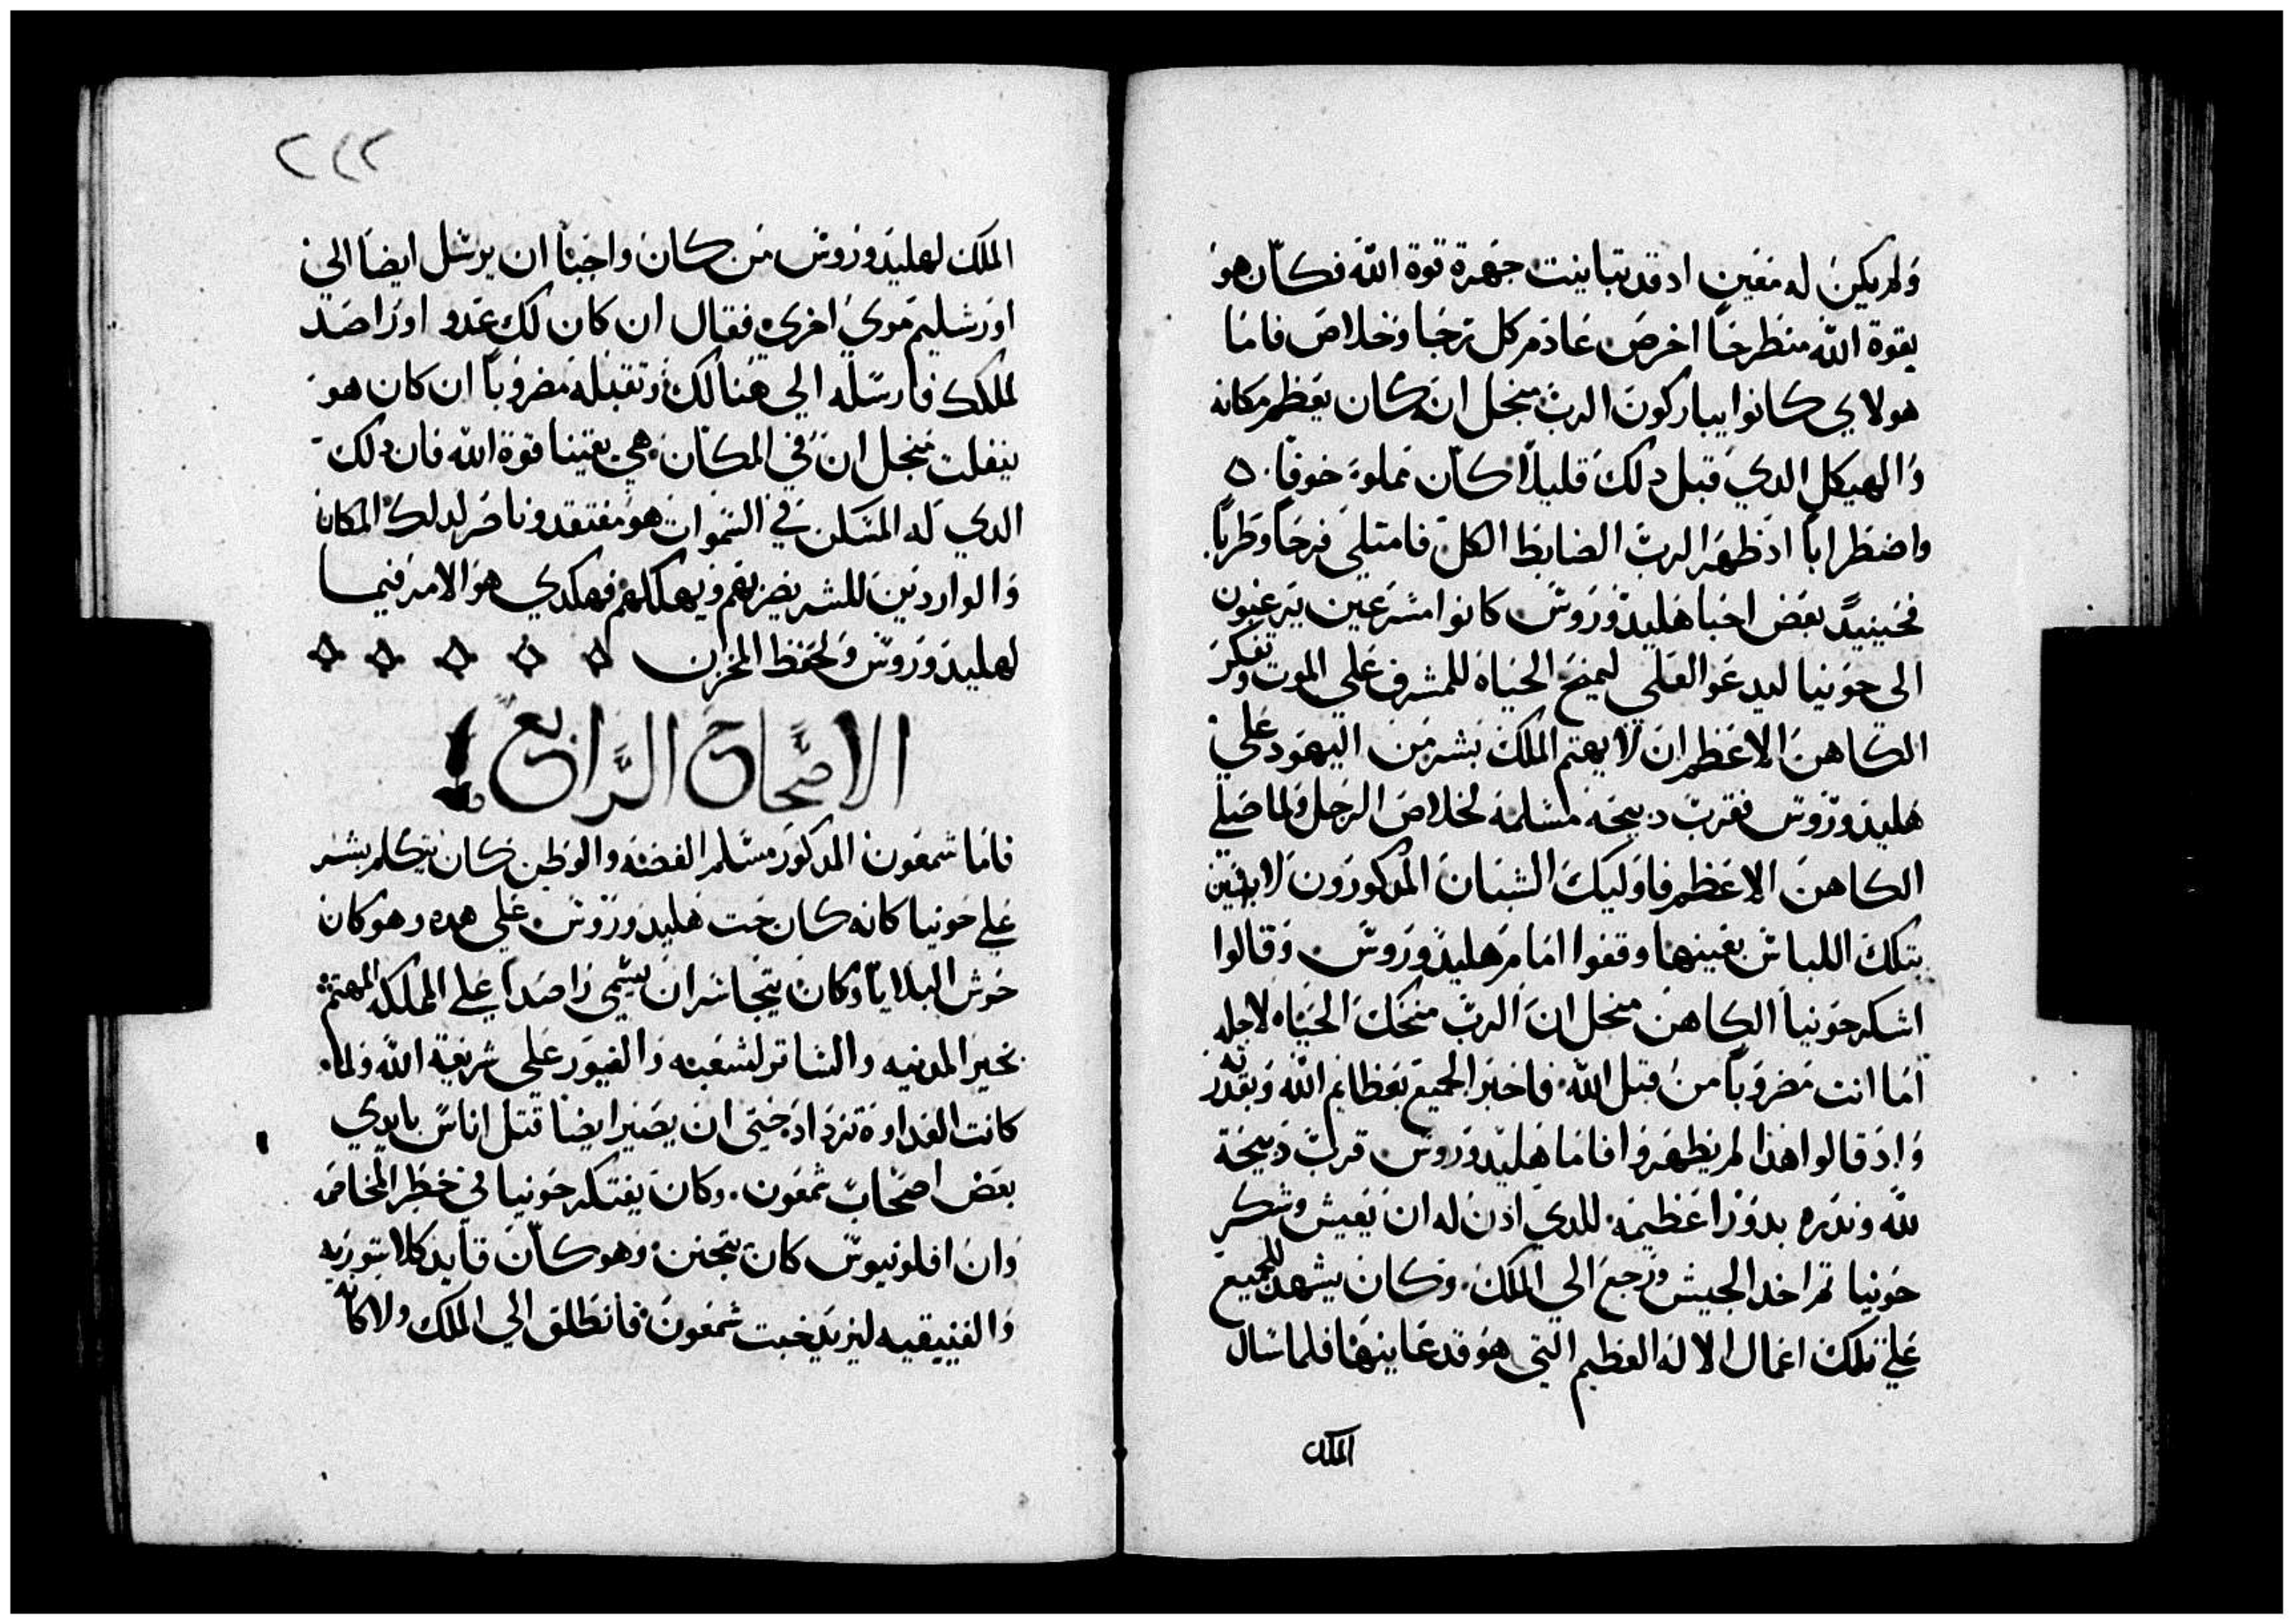 ولم يكن له معين اد قد تباينت جهرة قوة الله فكان هو
بقوة الله منطرحًا اخرص عادم كل ترجا وخلاص فاما
هولاي كانوا يباركون الرب منجل انه كان يعظم مكانه
والهيكل الدي قبل دلك قليلًا كان مملوء خوفًا
واضطرابًا اد ظهر الرب الضابط الكل فامتلي فرحًا وطربًا
فحينيدٍ بعض احبا هليدوروس كانوا مسرعين يترغبون
الى حونيا ليدعو العلي ليمنح الحياه للمشرف على الموت وتفكر
الكاهن الاعظم ان لا يهتم الملك بشر من اليهود علي
هليدوروس فقرب دبيحه مسلمه لخلاص الرجل ولما صلي
الكاهن الاعظم فاوليك الشبان المدكورون لابسين
بتلك اللباس بعينها وقفوا امام هليدوروس وقالوا
اشكر حونيا الكاهن منجل ان الرب منحك الحياه لاجله
اما انت مضروبًا من قبل الله فاخبر الجميع بعظايم الله وبقدرته
واد قالوا هدا لم يظهروا فاما هليدوروس قرب دبيحة
لله وندره بدورًا عظيمه للدي ادن له ان يعيش وشكر
حونيا تم اخد الجيش ورجع الي الملك وكان يشهد للجميع
علي تلك اعمال الاله العظيم التي هو قد عاينها فلما سال
الملك
٢٢٢
الملك لهليدوروس من كان واجبًا ان يرسل ايضا الي
اورشليم مري اخرى فقال ان كان لك عدو او راصد
لملكك فارسله الي هنالك وتقبله مضروبًا ان كان هو
ينفلت منجل ان في المكان هي يقينا قوة الله فان دلك
الدي له المسكن في السموات هو مفتقد وناصر لدلك المكان
والواردين للشر يضربهم ويهلكهم فهكدي هو الامر فيما
لهليدوروس ولحفظ المخزن
الاصحاح الرابع
فاما شمعون المدكور مسلم الفضه والوطن كان يتكلم بشر
علي حونيا كانه كان حت هليدوروس على هده وهو كان
حوش البلايا وكان يتجاسر ان يسمي راصدًا علي المملكه المهتم
بخير المدنيه والساتر لشعبه والغيور على شريعة الله ولما
كانت العداوة تزداد حتى ان يصير ايضا قتل اناس بايدي
بعض اصحاب شمعون وكان يفتكر حونيا في خطر المخاصمه
وان افلونيوس كان يتجنن وهو كان قايد كلاسوريه
والفنيقيه ليزيد خبت شمعون فانطلق الي الملك ولا كانه